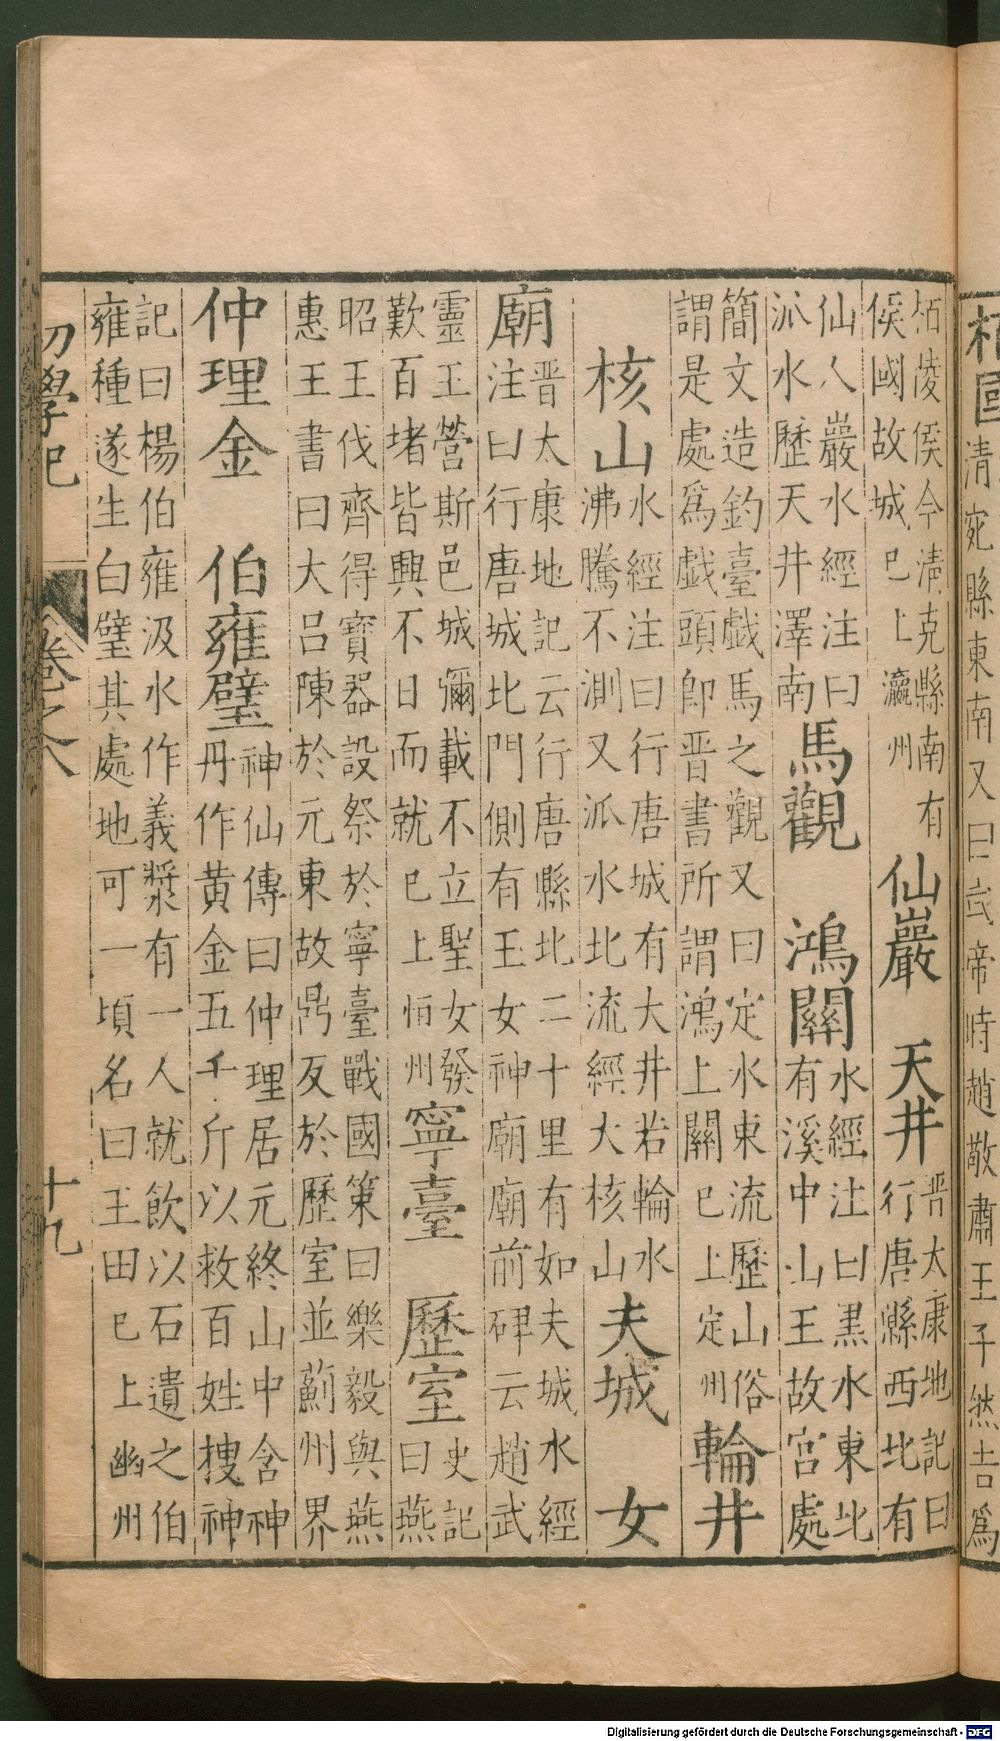 相國
清宛縣東南又曰武帝時趙敬肅王子然吉爲
栢陵侯今清克縣南有
侯國故城已上瀛州
仙巖 天井
晋太康地記曰
行唐縣西北有
仙人巖水經注曰
泒水歷天井澤南
馬觀 鴻關
水經注曰黒水東北
有溪中山王故宫處
簡文造釣臺戯馬之觀又曰定水東流歷山俗
謂是處爲戯頭卽晋書所謂鴻上關已上定州
輪井
核山
水經注曰行唐城有大井若輪水
沸騰不測又泒水北流經大核山
夫城 女
廟
晋太康地記云行唐縣北二十里有如夫城水經
注曰行唐城北門側有玉女神廟廟前碑云趙武
靈王營斯邑城彌載不立聖女發
歎百堵皆興不日而就已上恒州
寧臺 歷室
史記
曰燕
昭王伐齊得寶器設祭於寧臺戰國策曰樂毅與燕
惠王書曰大吕陳於元東故鼎反於歷室並薊州界
仲理金 伯雍璧
神仙傳曰仲理居元終山中含神
丹作黄金五千斤以救百姓搜神
記曰楊伯雍汲水作義漿有一人就飲以石遺之伯
雍種遂生白璧其處地可一頃名曰王田已上幽州
初學記 卷之八 十九
Digitalisierung gefördert durch die Deutsche Forschungsgemeinschaft - DFG